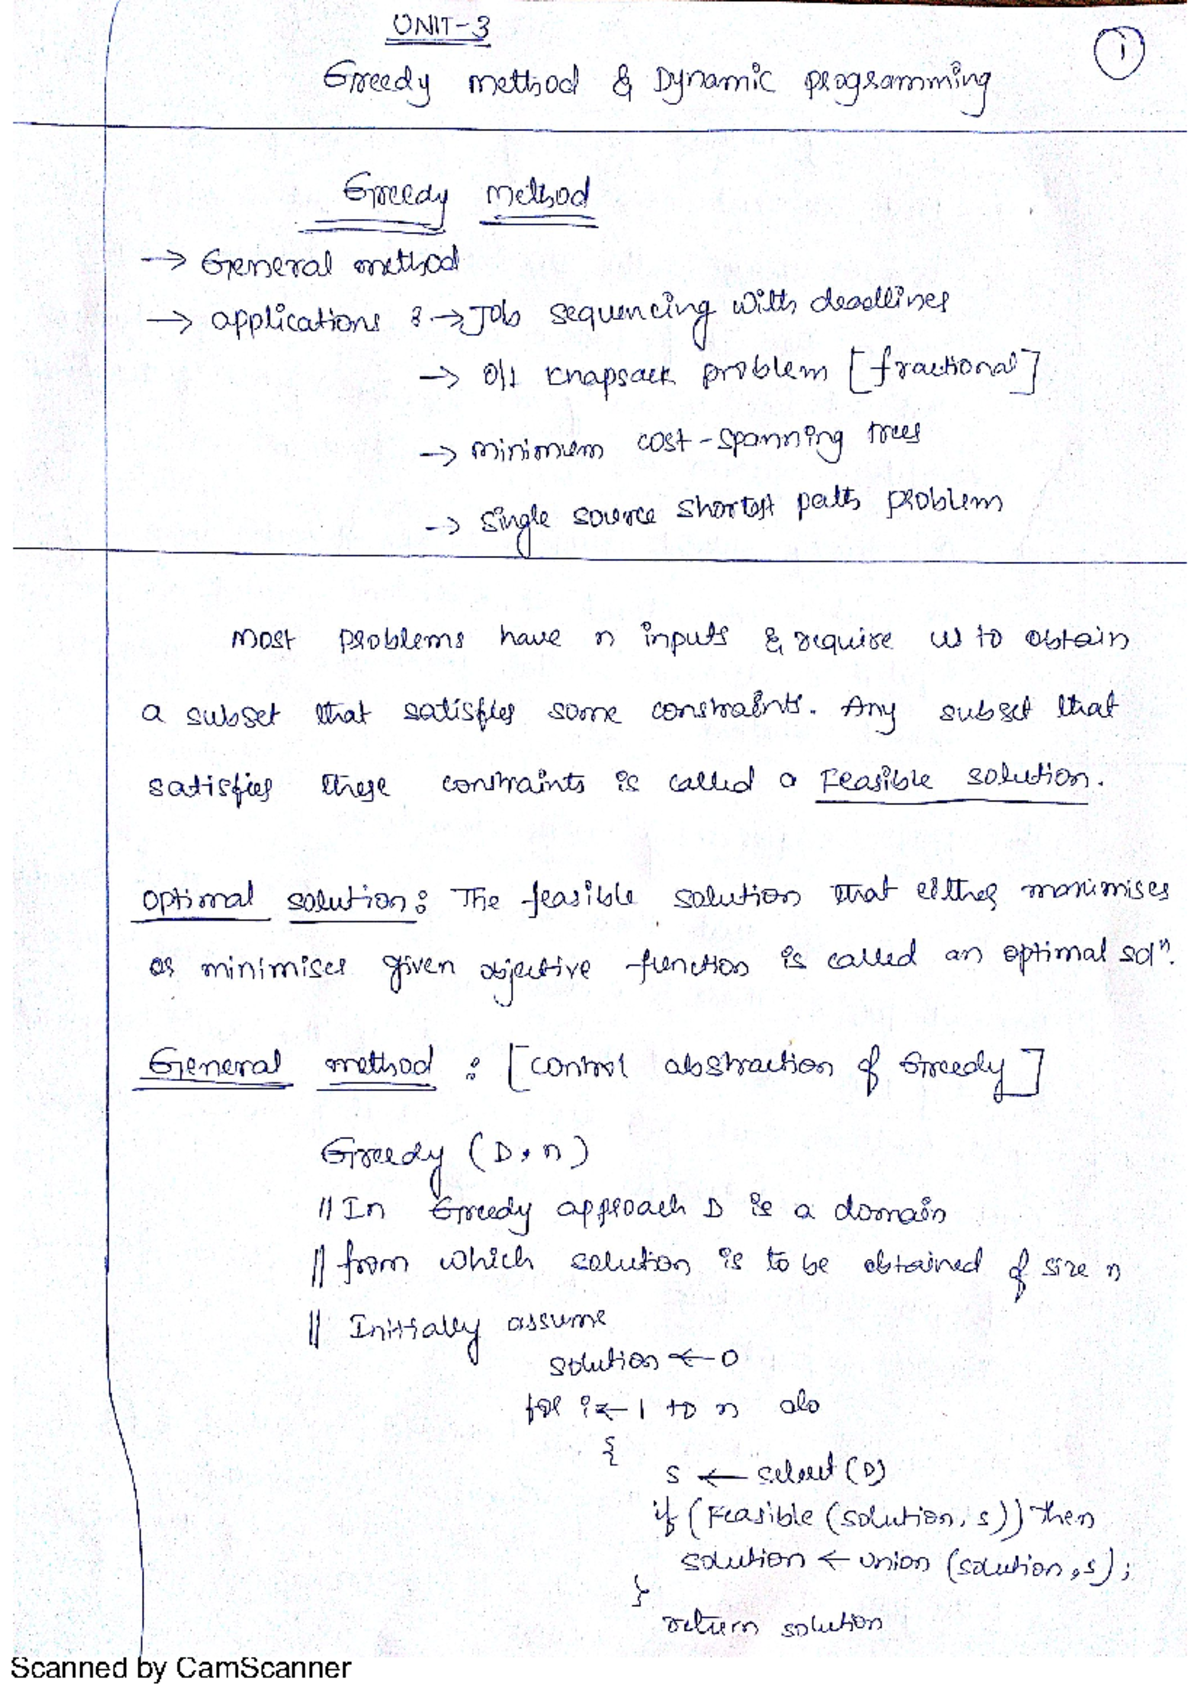 UNIT-3
1
Greedy method & Dynamic programming
Greedy method
→ General method
→ applications : → Job sequencing with deadlines
→ 0/1 knapsack problem [fractional]
→ minimum cost-spanning trees
→ single source shortest path problem
Most problems have n inputs & require us to obtain
a subset that satisfies some constraints. Any subset that
satisfies these constraints is called a Feasible solution.
optimal solution: The feasible solution that either maximises
or minimises given objective function is called an optimal solⁿ.
General method : [control abstraction of Greedy]
Greedy (D, n)
// In Greedy approach D is a domain
// from which solution is to be obtained of size n
// Initially assume
solution ← 0
for i ← 1 to n do
{
s ← select (D)
if (Feasible (solution, s)) then
solution ← union (solution, s);
}
return solution
Scanned by CamScanner